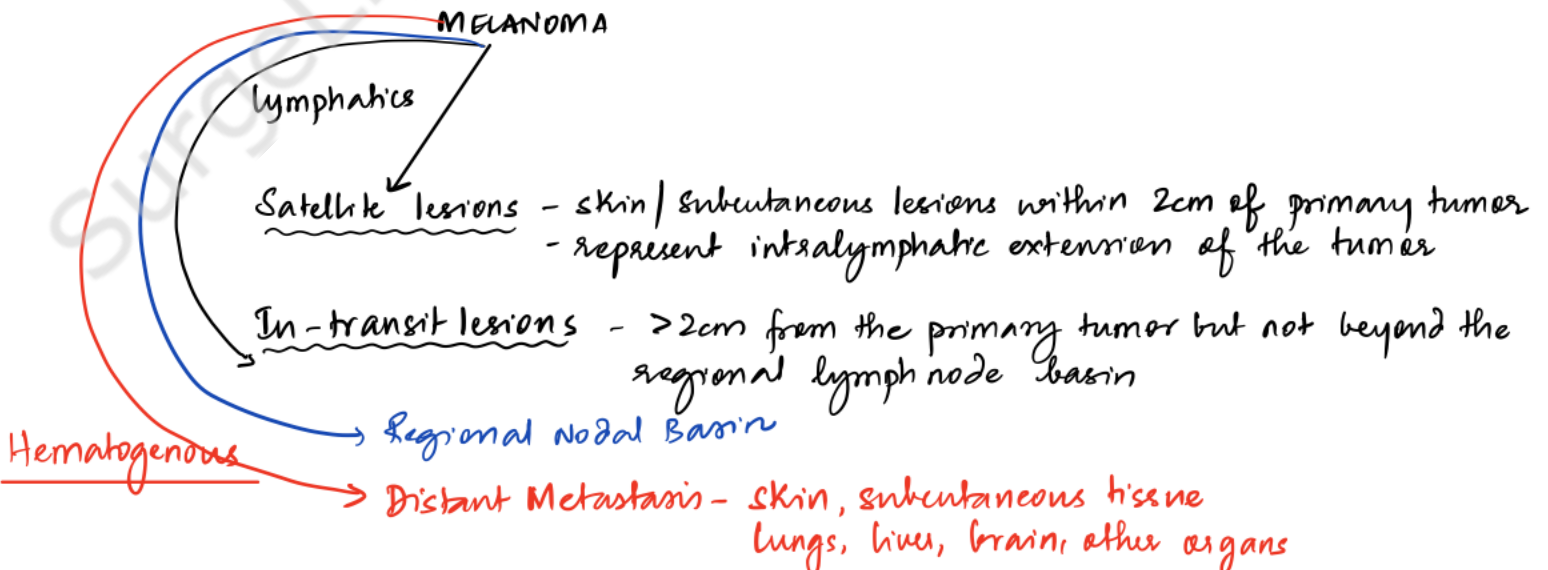 MELANOMA
lymphatics
Satellite lesions - skin/subcutaneous lesions within 2cm of primary tumor
- represent intralymphatic extension of the tumor
In-transit lesions - >2cm from the primary tumor but not beyond the
regional lymph node basin
Regional Nodal Basin
Hematogenous
Distant Metastasis - skin, subcutaneous tissue
lungs, liver, brain, other organs